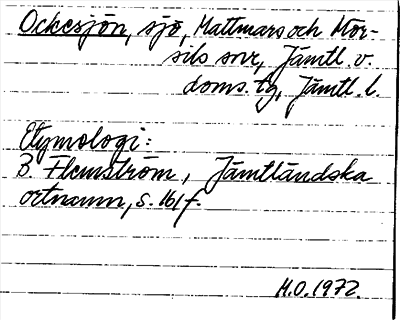 Ockesjön, sjö, Mattmars och Mör-
sils snr, Jämtl. v.
doms. tg, Jämtl. l.
Etymologi:
B. Flemström, Jämtländska
ortnamn, s. 161 f.
M.O. 1972.